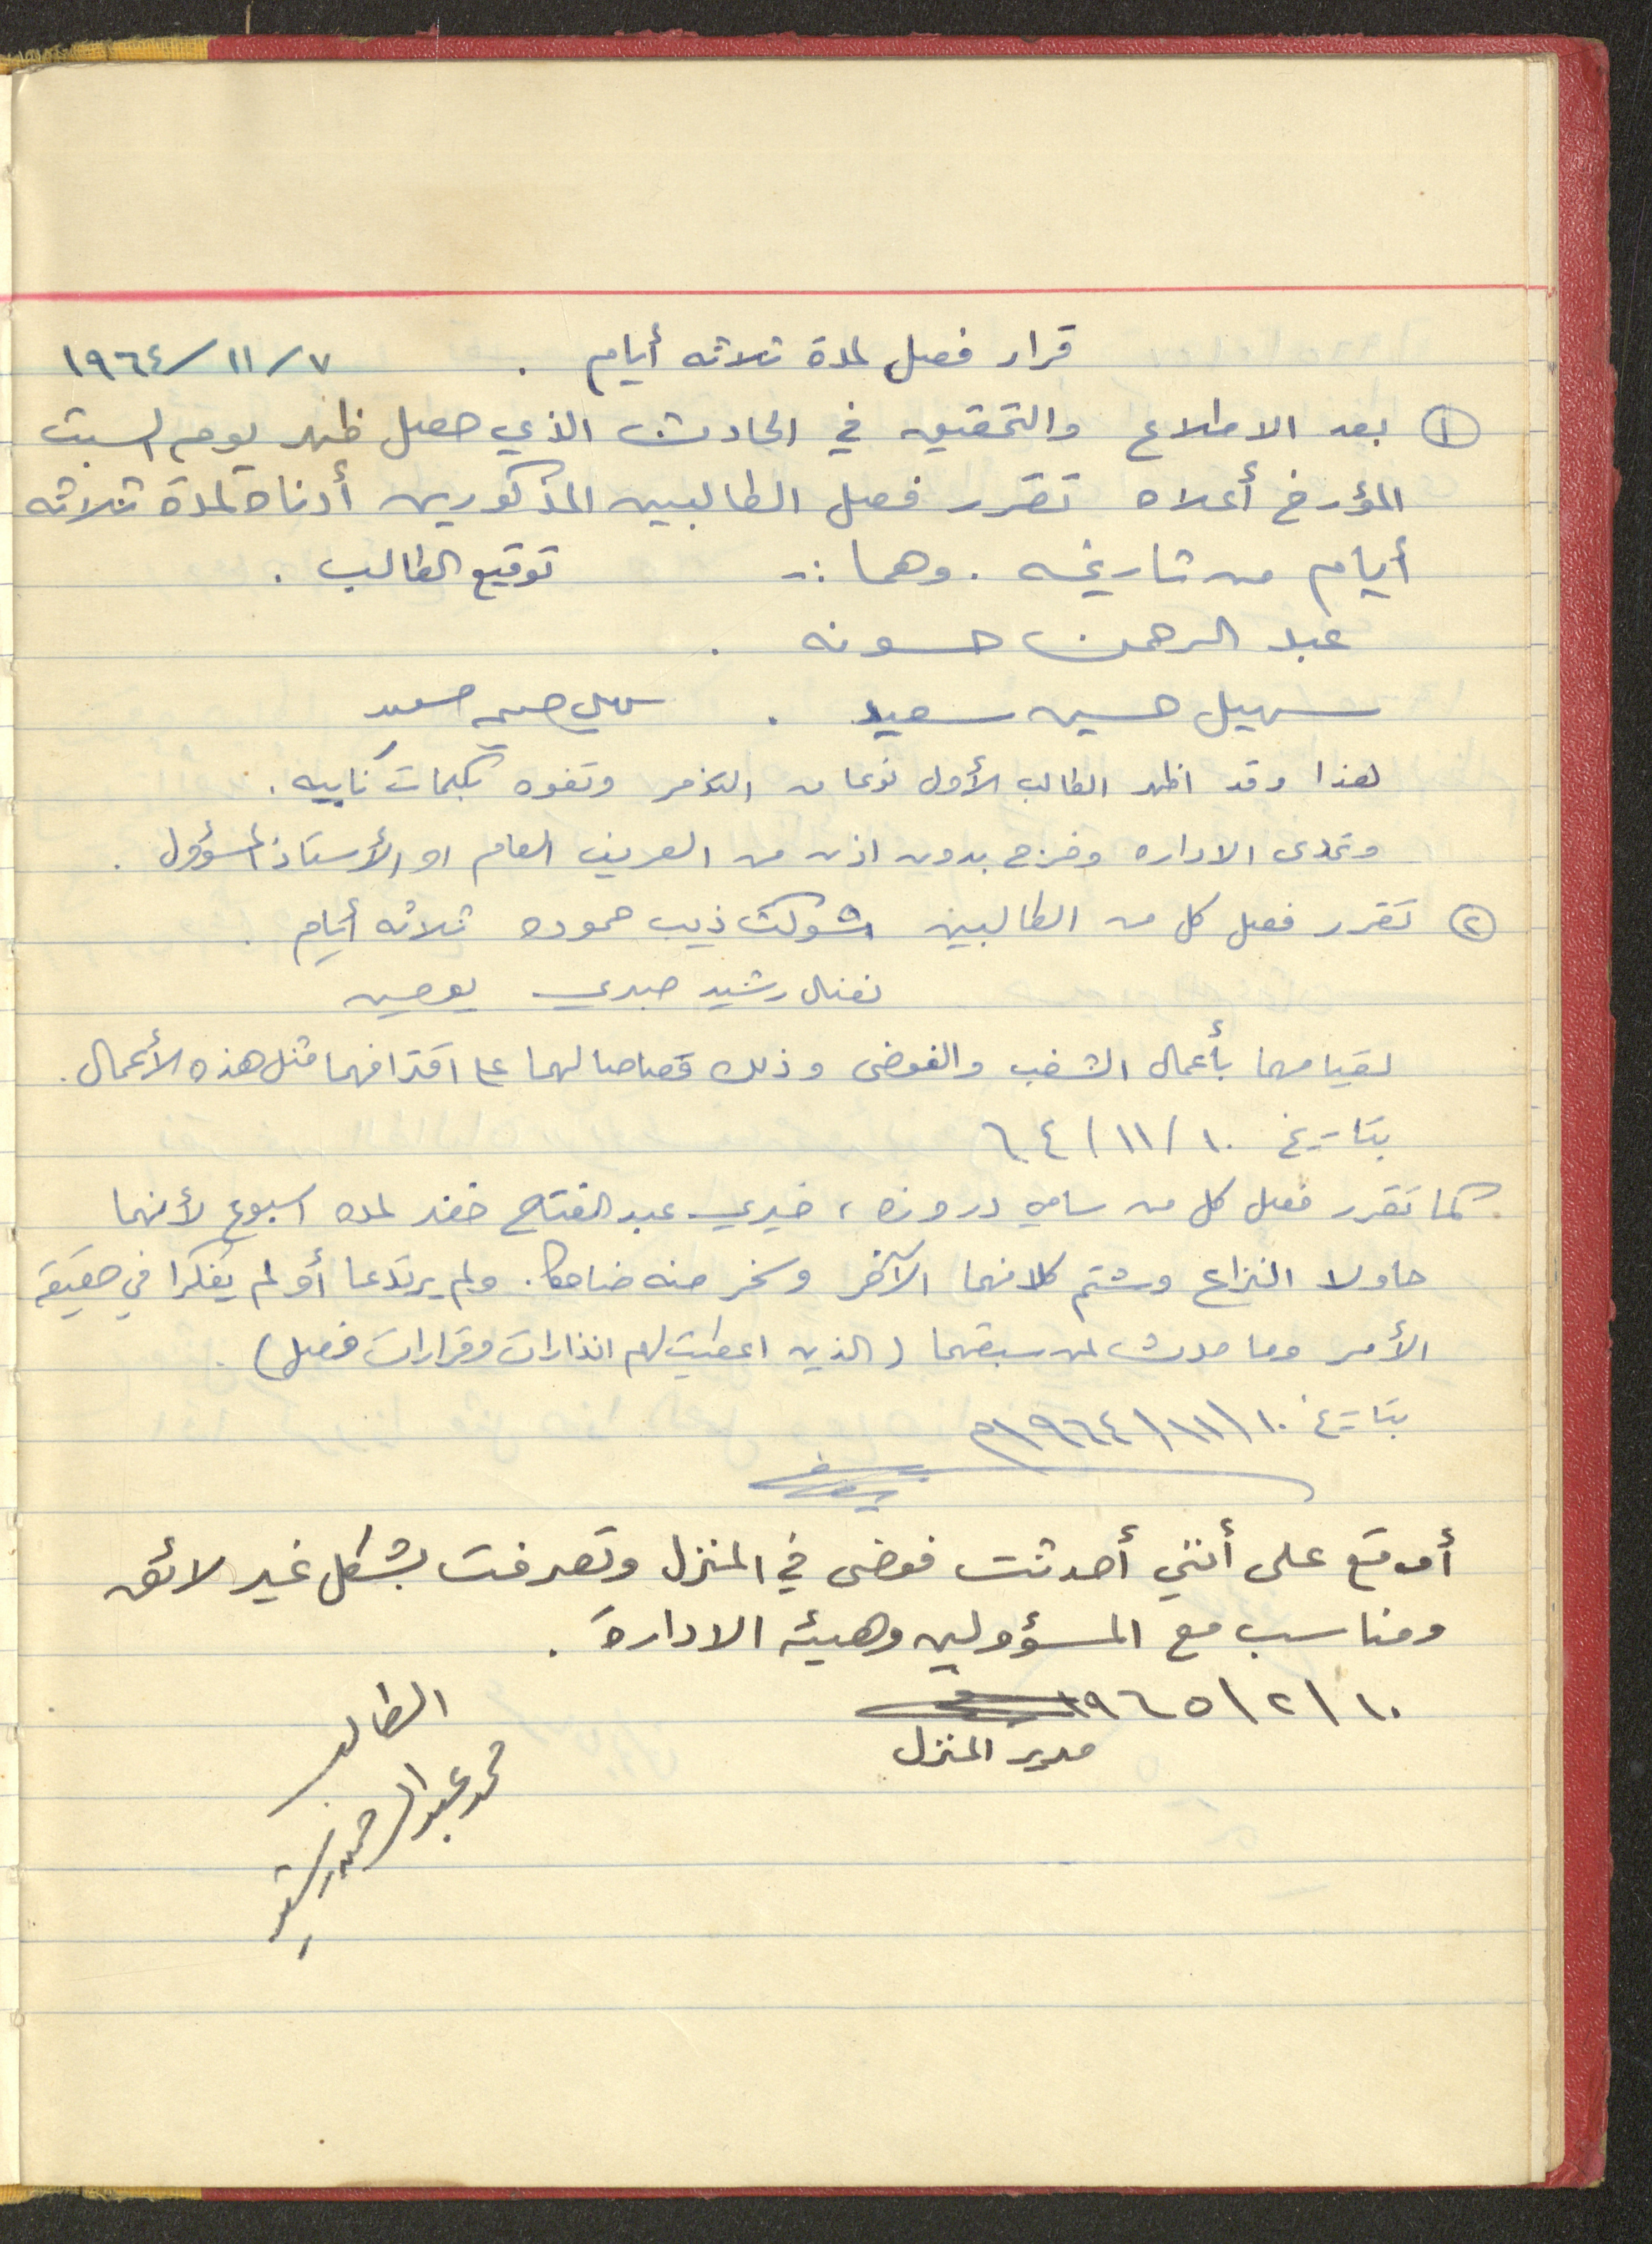 قرار فصل لمدة ثلاثه أيام . ٧/١١/١٩٦٤
① بعد الاطلاع والتحقيق في الحادث الذي حصل ظهر يوم السبت
المؤرخ أعلاه تقرر فصل الطالبين المذكورين أدناه لمدة ثلاثه
أيام من تاريخه . وهما :- توقيع الطالب .
عبد الرحمن حسونه .
سهيل حسين سعيد . سهيل حسين سعيد
هذا وقد اظهر الطالب الأول نوعا من التذمر وتفوه بكلمات نابيه .
وتحدى الاداره وخرج بدون اذن من العريف العام او الأستاذ المسؤول .
② تقرر فصل كل من الطالبين شوكت ذيب حموده ثلاثه أيام .
نضال رشيد صبري يومين
لقيامهما بأعمال الشغب والفوضى وذلك قصاصا لهما على اقترافهما مثل هذه الأعمال .
بتاريخ ١٠/١١/٦٤
كما تقرر فصل كل من سامي دروزه ، خيري عبد الفتاح خضر لمده اسبوع لأنهما
حاولا النزاع وشتم كلانهما الآخر وسخر منه ضاحكا . ولم يرتدعا أو لم يفكرا في حقيقة
الأمر وما حدث لمن سبقهما ( الذين اعطيت لهم انذارات وقرارات فصل ) .
بتاريخ ١٠/١١/١٩٦٤م
أوقع على أنني أحدثت فوضى في المنزل وتصرفت بشكل غير لائق
ومناسب مع المسؤولين وهيئه الادارة .
١٠/٢/١٩٦٥
مدير المنزل
الطالب
محمد عبد الرحمن رشيد